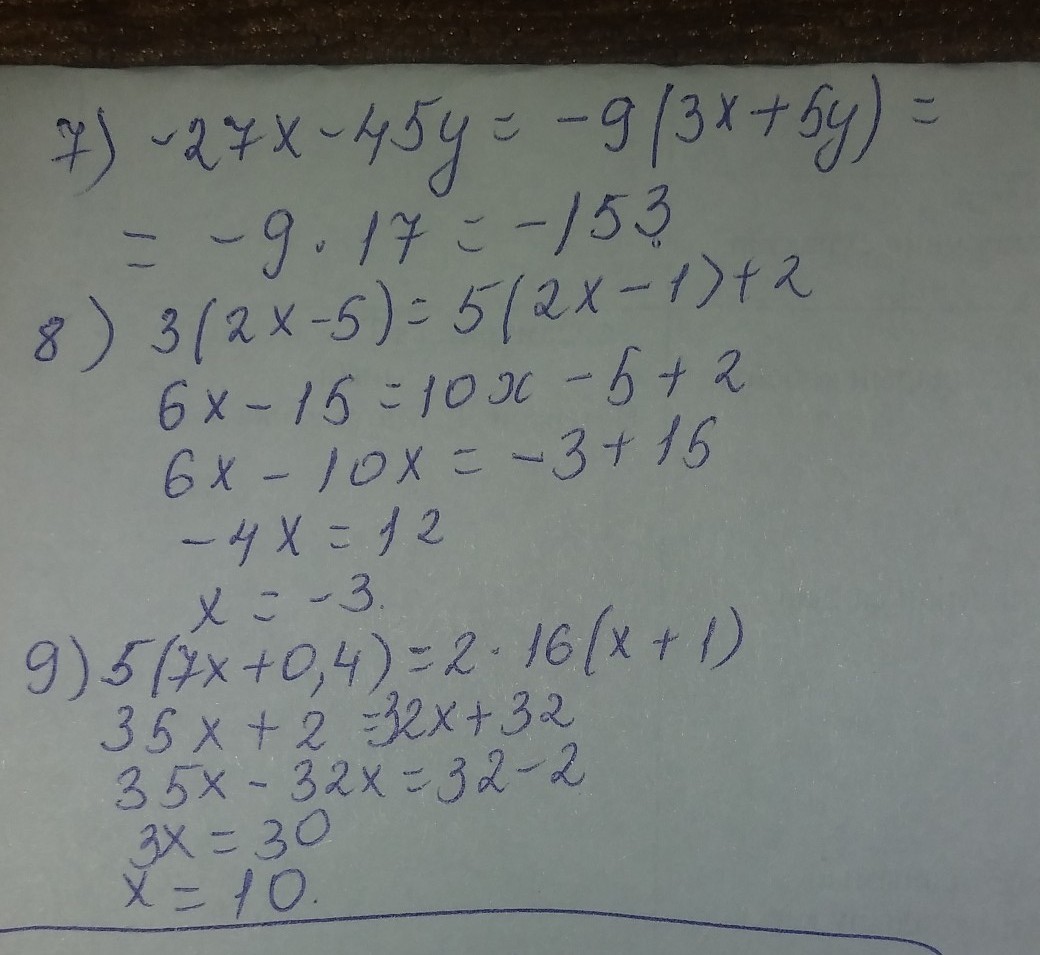 7) -27x-45y= -9(3x+5y)=
= -9·17=-153
8) 3(2x-5)=5(2x-1)+2
6x-15=10x-5+2
6x-10x=-3+15
-4x=12
x=-3.
9) 5(7x+0,4)=2·16(x+1)
35x+2=32x+32
35x-32x=32-2
3x=30
x=10.